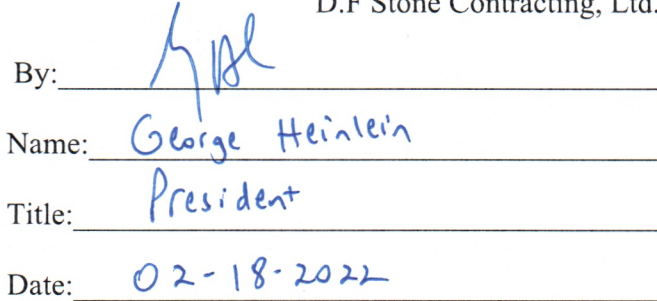 D.F Stone Contracting, Ltd.
By:
Name: George Heinlein
Title: President
Date: 02-18-2022